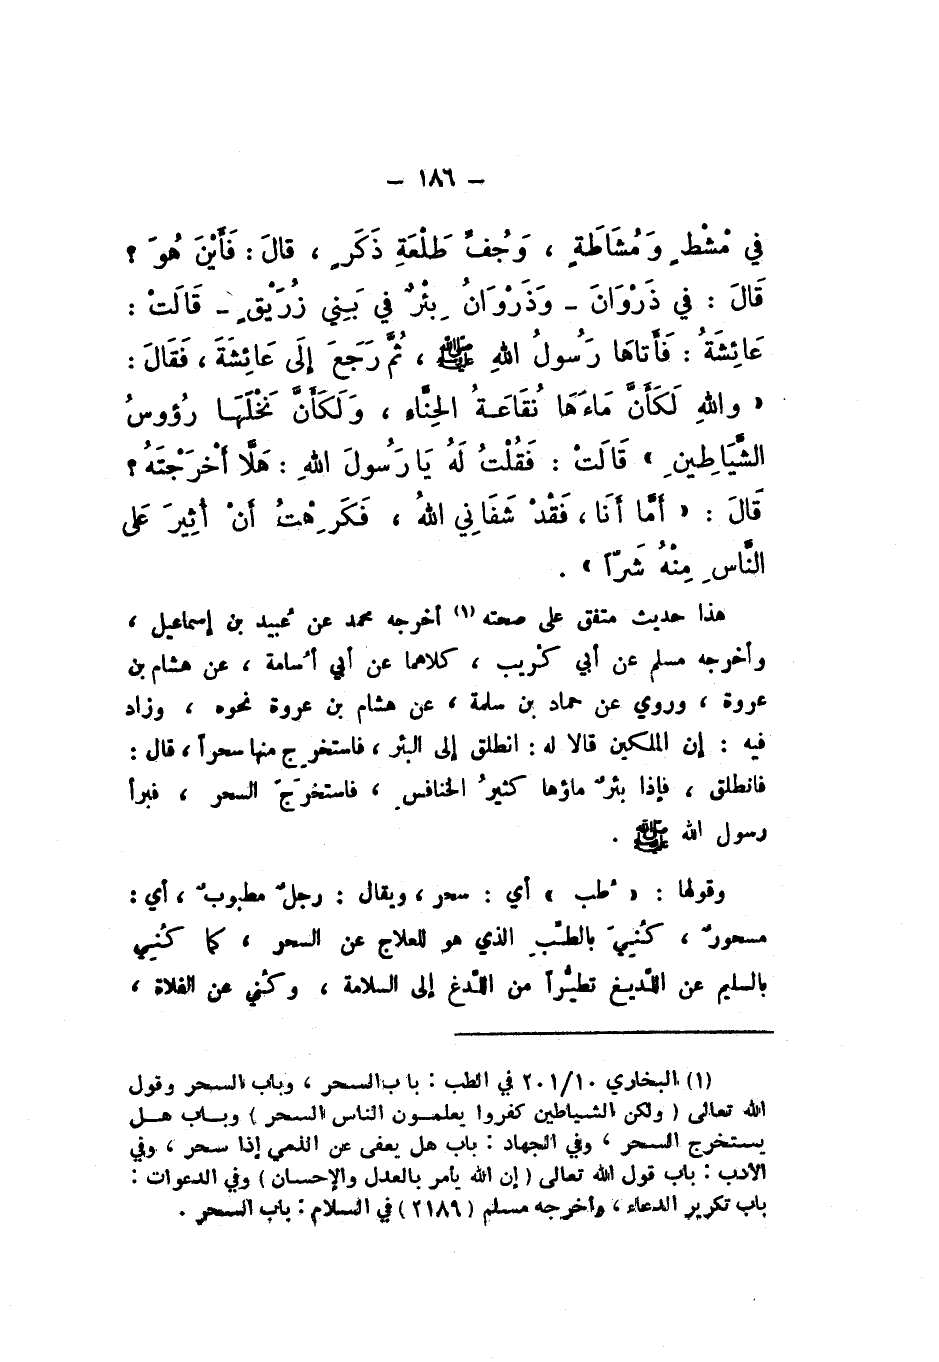 – ١٨٦ –
في مُشْطٍ وَمُشَاطَةٍ ، وَجُفِّ طَلْعَةِ ذَكَرٍ ، قالَ : فَأَيْنَ هُوَ ؟
قَالَ : في ذَرْوَانَ – وَذَرْوَانُ بِئْرٌ في بَنِي زُرَيْقٍ – قَالَتْ :
عَائِشَةُ : فَأَتاهَا رَسُولُ اللهِ ﷺ ، ثُمَّ رَجَعَ إِلَى عَائِشَةَ ، فَقَالَ :
« واللهِ لَكَأَنَّ مَاءَهَا نُقَاعَةُ الحِنَّاءِ ، وَلَكَأَنَّ نَخْلَهَا رُؤوسُ
الشَّيَاطِينِ » قَالَتْ : فَقُلْتُ لَهُ يَا رَسُولَ اللهِ : هَلَّا أَخْرَجْتَهُ ؟
قَالَ : « أَمَّا أَنَا ، فَقَدْ شَفَانِي اللهُ ، فَكَرِهْتُ أَنْ أُثِيرَ عَلى
النَّاسِ مِنْهُ شَرّاً » .
هذا حديث متفق على صحته (١) أخرجه محمد عن عُبيد بن إسماعيل ،
وأخرجه مسلم عن أبي كُريب ، كلاهما عن أبي أُسامة ، عن هشام بن
عروة ، وروي عن حماد بن سلمة ، عن هشام بن عروة نحوه ، وزاد
فيه : إن الملكين قالا له : انطلق إلى البئر ، فاستخرِج منها سحراً ، قال :
فانطلق ، فإذا بئرٌ ماؤها كثيرُ الخنافسِ ، فاستخرَجَ السحر ، فبرأ
رسول الله ﷺ .
وقولها : « طُب » أي : سحر ، ويقال : رجلٌ مطبوبٌ ، أي :
مسحورٌ ، كُنِيَ بالطبِّ الذي هو للعلاج عن السحر ، كما كُنِي
بالسليم عن اللَّديغ تطيُّراً من اللَّدغ إلى السلامة ، وكُني عن الفلاة ،
(١) البخاري ٢٠١/١٠ في الطب : باب السحر ، وباب السحر وقول
الله تعالى ( ولكن الشياطين كفروا يعلمون الناس السحر ) وباب هل
يستخرج السحر ، وفي الجهاد : باب هل يعفى عن الذمي إذا سحر ، وفي
الأدب : باب قول الله تعالى ( إن الله يأمر بالعدل والإحسان ) وفي الدعوات :
باب تكرير الدعاء ، وأخرجه مسلم ( ٢١٨٩ ) في السلام : باب السحر .